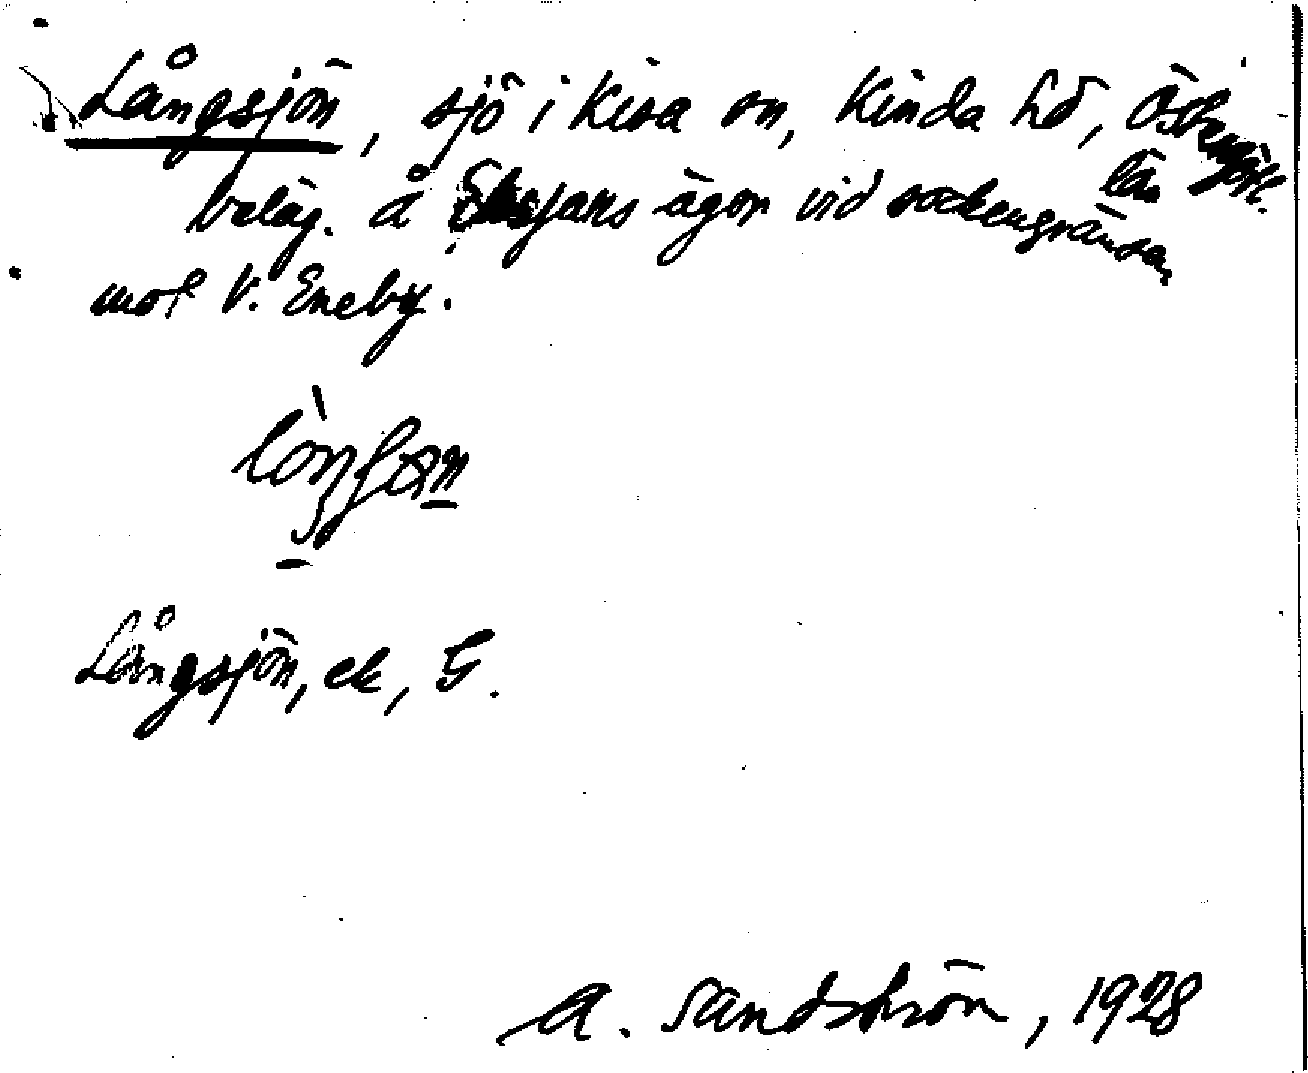 Långsjön, sjö i Kisa sn, Kinda hd, Östergötl. län
beläg. å ägor vid sockengränsen
mot V. Eneby.
Långsjön, ek, G.
A. Sandström, 1928